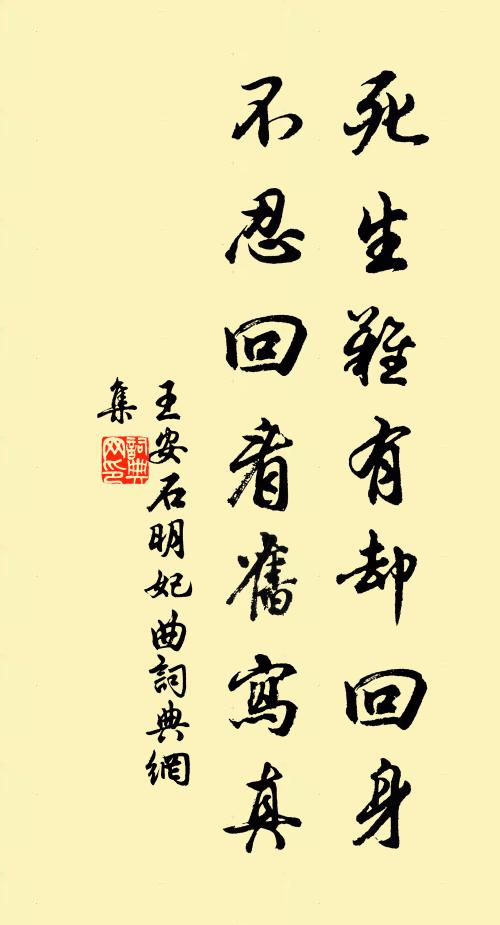 死生難有却回身
不忍回看舊寫真
王安石明妃曲詞典網
集
詞典
网印